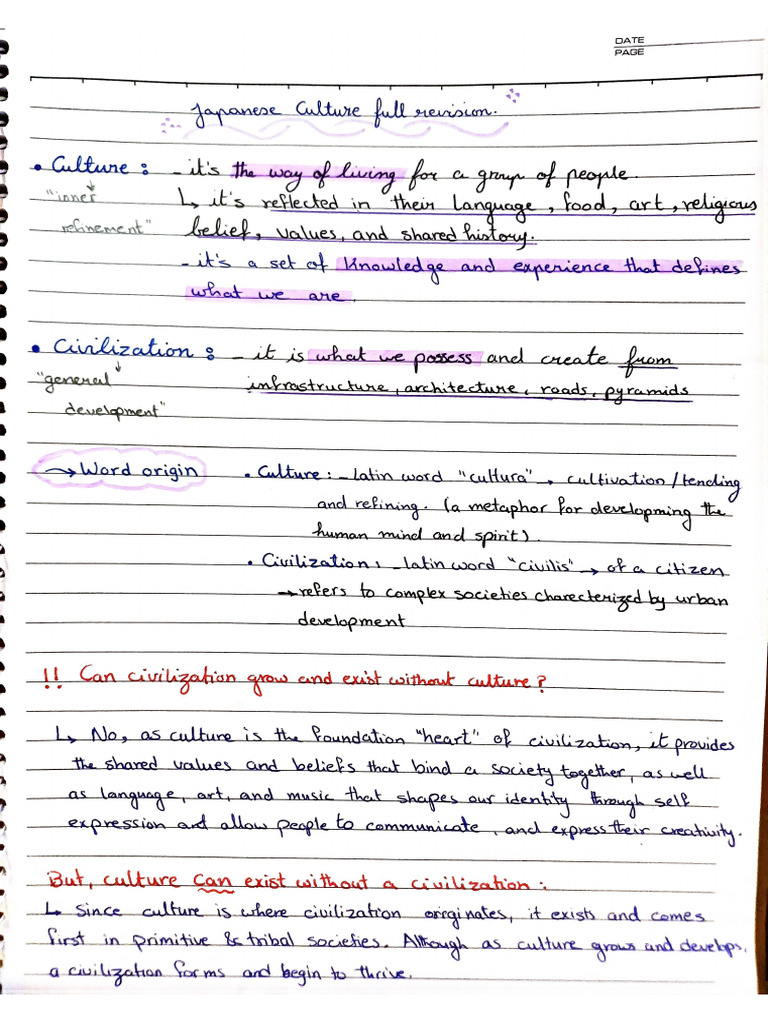 DATE
PAGE
Japanese Culture full revision.
• Culture : - it's the way of living for a group of people.
"inner ↳ it's reflected in their language, food, art, religious
refinement" belief, values, and shared history.
- it's a set of knowledge and experience that defines
what we are.
• Civilization : - it is what we possess and create from
"general infrastructure, architecture, roads, pyramids
development"
→ Word origin • Culture : - latin word "cultura" → cultivation/tending
and refining. (a metaphor for developming the
human mind and spirit).
• Civilization : - latin word "civilis" → of a citizen
→ refers to complex societies charecterized by urban
development
!! Can civilization grow and exist without culture?
↳ No, as culture is the foundation "heart" of civilization, it provides
the shared values and beliefs that bind a society together, as well
as language, art, and music that shapes our identity through self
expression and allow people to communicate, and express their creativity.
But, culture can exist without a civilization :
↳ Since culture is where civilization originates, it exists and comes
first in primitive & tribal societies. Although as culture grows and develops,
a civilization forms and begin to thrive.